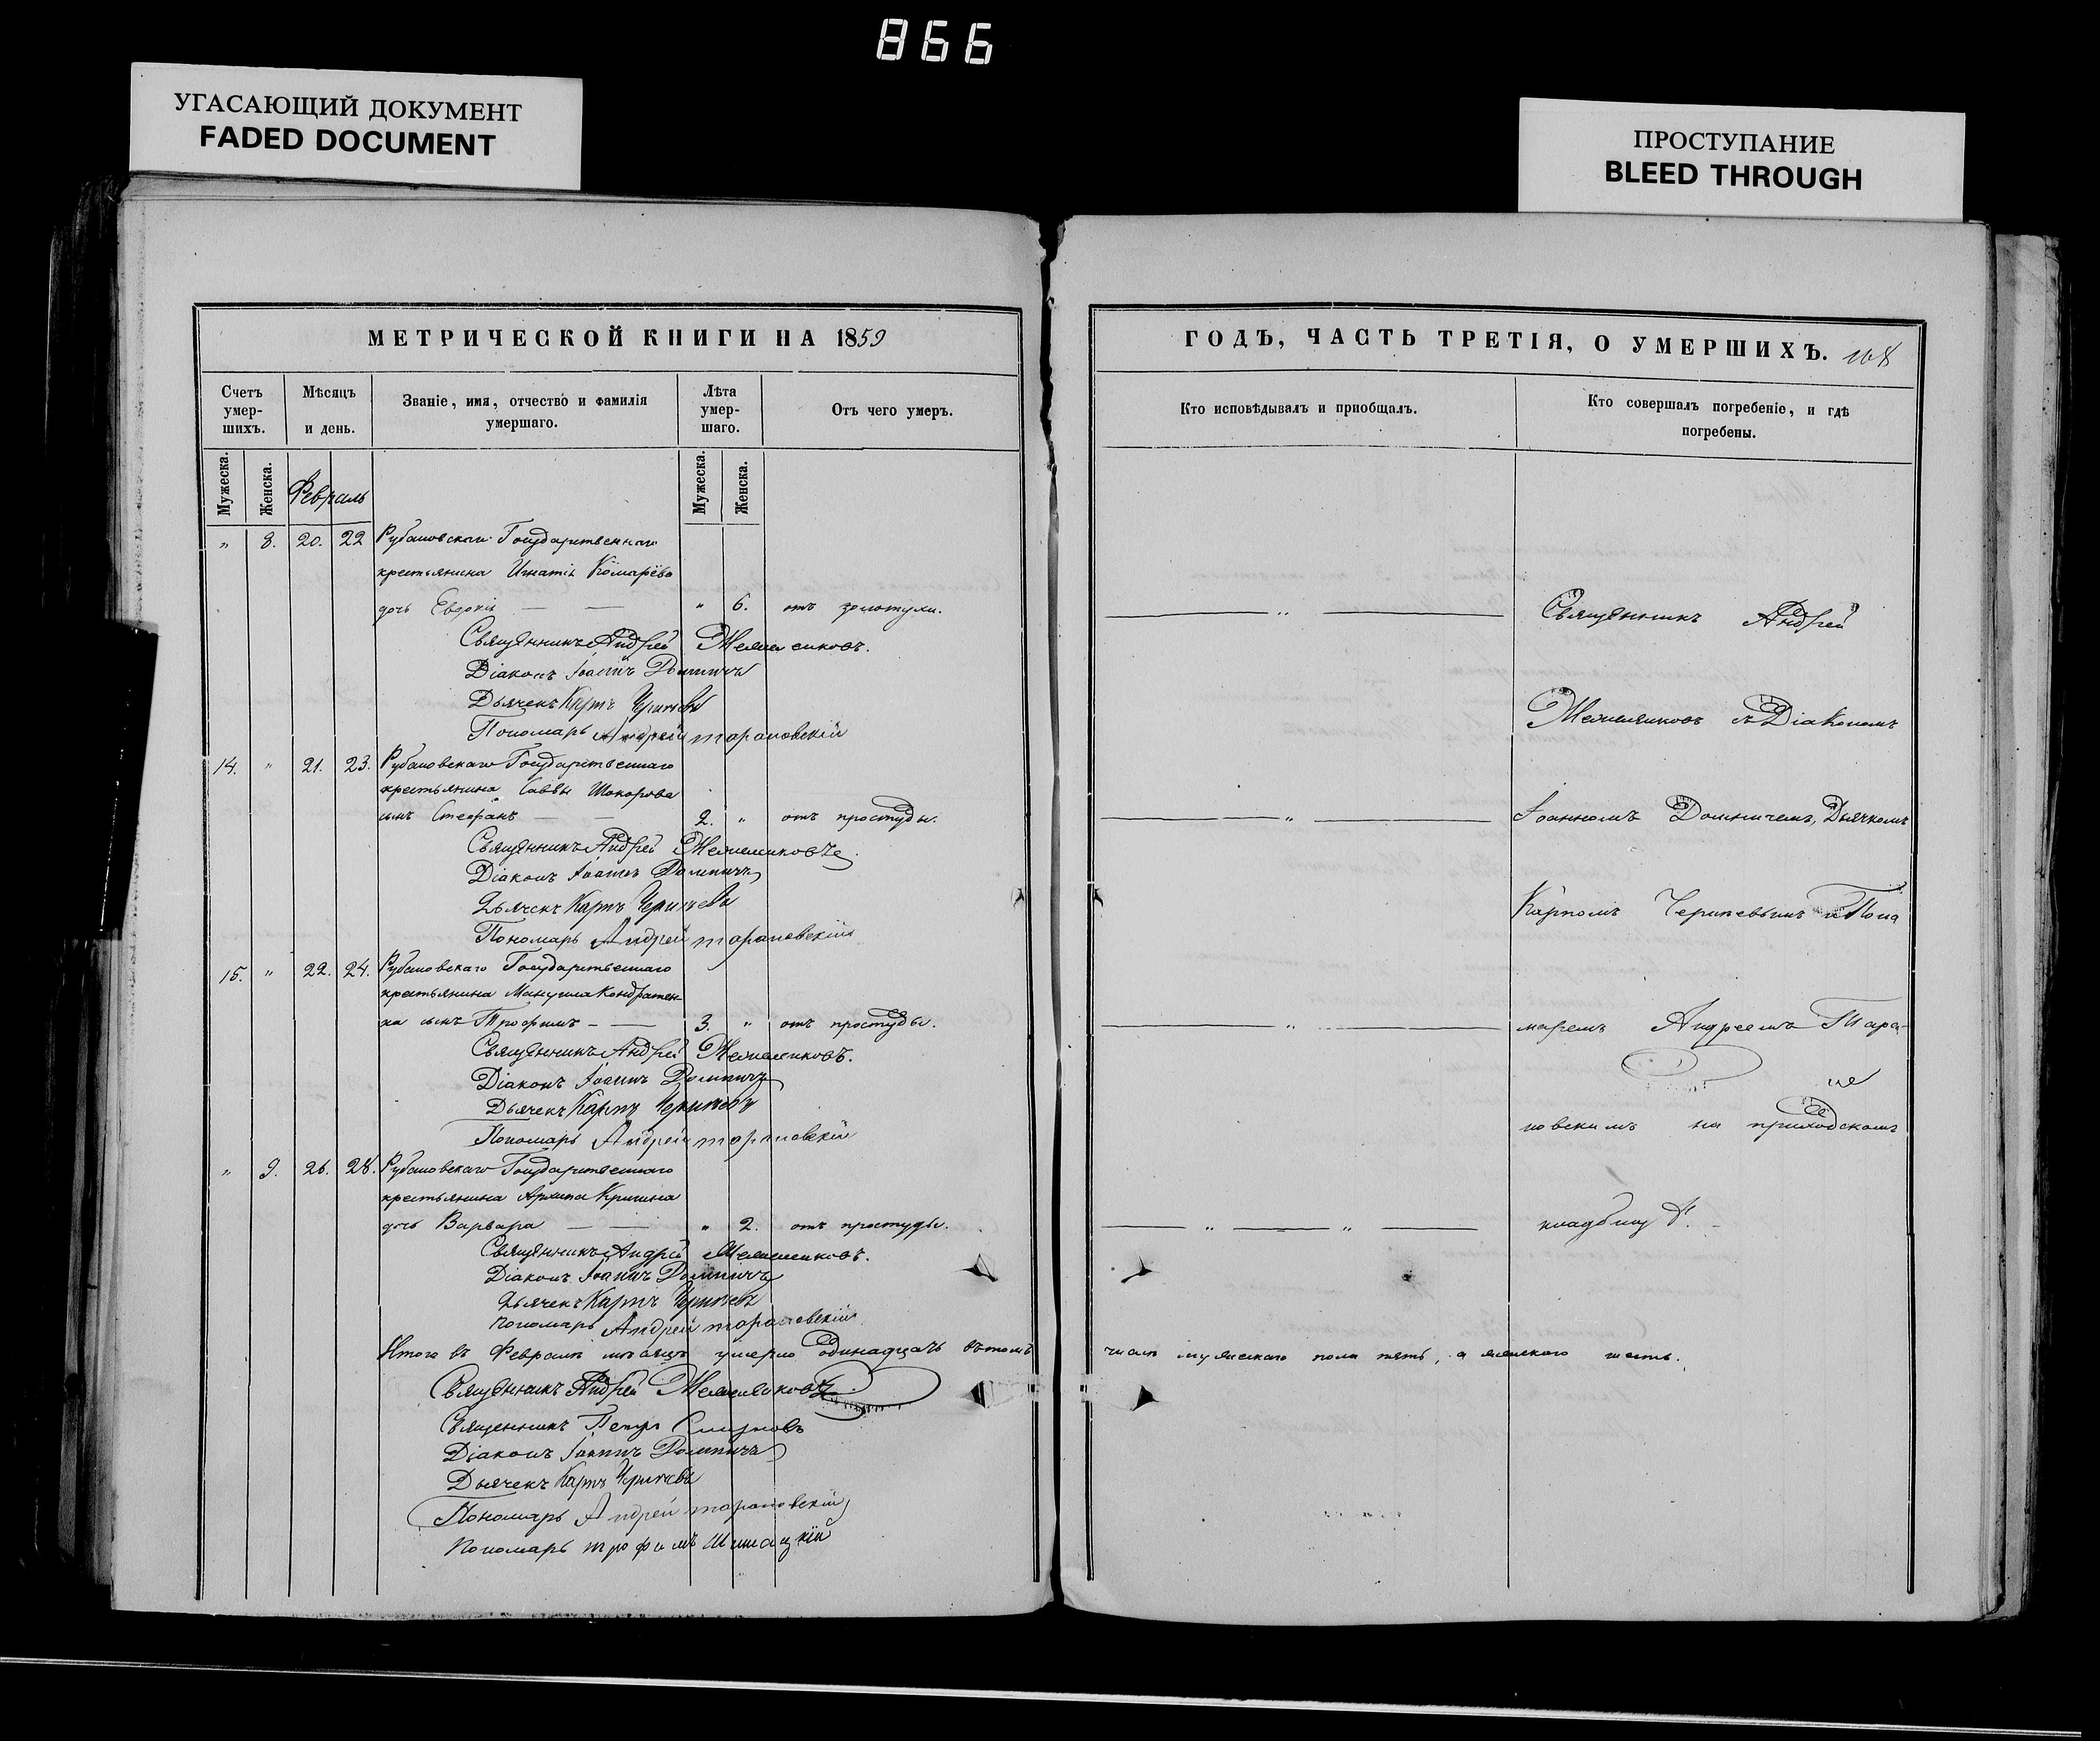 866
УГАСАЮЩИЙ ДОКУМЕНТ
FADED DOCUMENT
ПРОСТУПАНИЕ
BLEED THROUGH
МЕТРИЧЕСКОЙ КНИГИ НА 1859
Счетъ умер-шихъ.
Мѣсяцъ и день.
Званіе, имя, отчество и фамилія умершаго.
Лѣта умер-шаго.
Отъ чего умеръ.
Мужеска.
Женска.
Февраль
Мужеска.
Женска.
" 8. 20. 22 Рубановскаго Государственнаго
крестьянина Игнатія Комарёва
дочь Евдокія — — " 6. отъ золотухи.
Священникъ Андрей
Діаконъ Іоаннъ Домничъ
Дьячекъ Карпъ
Пономарь Андрей тарановскій
14. " 21. 23. Рубановскаго Государственнаго
крестьянина Саввы Шокорова
сынъ Стефанъ — — 2. " отъ простуды.
Священникъ Андрей
Діаконъ Іоаннъ Домничъ
Дьячекъ Карпъ
Пономарь Андрей тарановскій
15. " 22. 24. Рубановскаго Государственнаго
крестьянина Мануила Кондратен-
ка сынъ Трофимъ - — 3. " отъ простуды.
Священникъ Андрей
Діаконъ Іоаннъ Домничъ
Дьячекъ Карпъ
Пономарь Андрей тарановскій
" 9. 26. 28. Рубановскаго Государственнаго
крестьянина Архипа
дочь Варвара — — " 2. отъ простуды.
Священникъ Андрей
Діаконъ Іоаннъ Домничъ
Дьячекъ Карпъ
Пономарь Андрей тарановскій
Итого въ Февралѣ мѣсяцѣ умерло одинадцать вътомъ
Священникъ Андрей
Священникъ Петръ Смирновъ
Діаконъ Іоаннъ Домничъ
Дьячекъ Карпъ
Пономарь Андрей тарановскій
Пономарь трофимъ Шишацкій
ГОДЪ, ЧАСТЬ ТРЕТІЯ, О УМЕРШИХЪ. 168
Кто исповѣдывалъ и приобщалъ.
Кто совершалъ погребеніе, и гдѣ погребены.
Священникъ Андрей
съ Діакономъ
Іоанномъ Домничемъ, Дьячкомъ
Карпомъ и Поно
маремъ Андреемъ Тара-
новскимъ на приходскомъ
кладбищѣ.
числѣ мужескаго пола пять, а женскаго шесть.